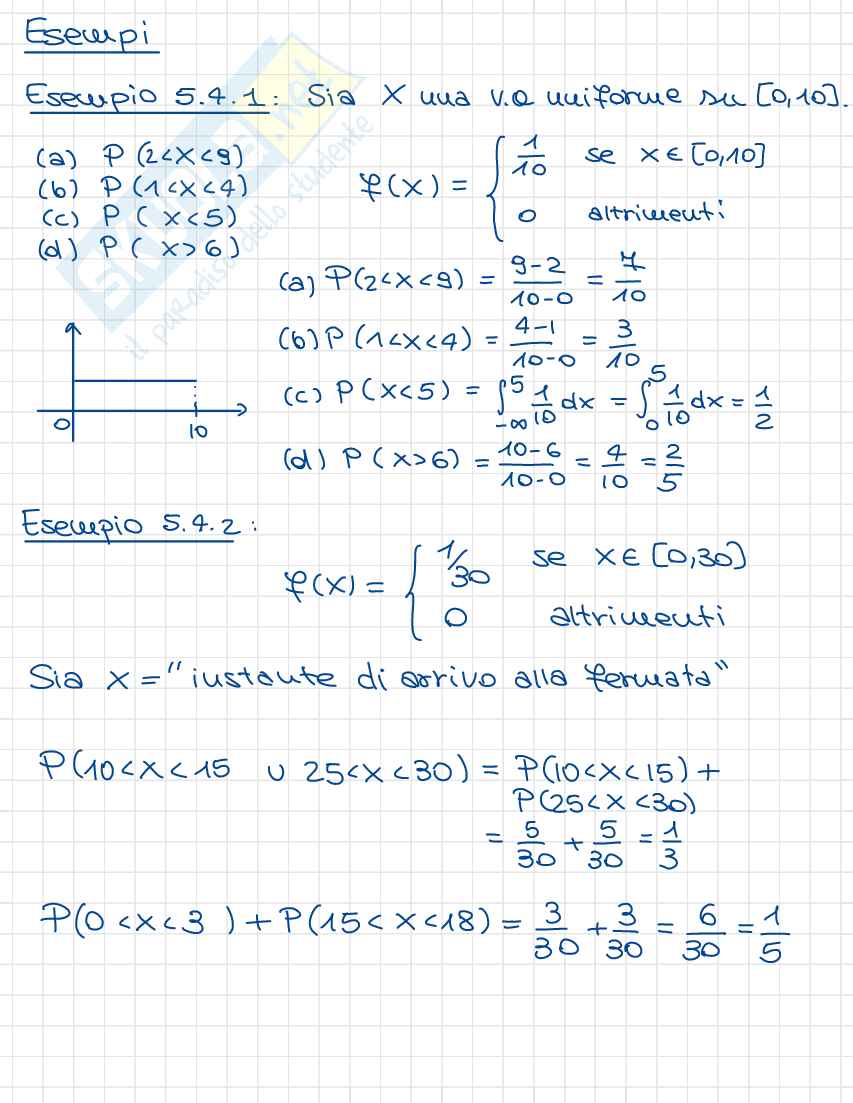 Esempi
Esempio 5.4.1: Sia X una v.a uniforme su [0,10].
(a) P(2<X<9)
(b) P(1<X<4)
(c) P( X<5)
(d) P( X>6)
f(X) = { 1/10 se x∈[0,10]
0 altrimenti
(a) P(2<X<9) = 9-2/10-0 = 7/10
(b) P(1<X<4) = 4-1/10-0 = 3/10
(c) P(X<5) = ∫_{-∞}^{5} 1/10 dx = ∫_{0}^{5} 1/10 dx = 1/2
(d) P(X>6) = 10-6/10-0 = 4/10 = 2/5
0 10
Esempio 5.4.2:
f(X) = { 1/30 se X∈[0,30]
0 altrimenti
Sia X = "instante di arrivo alla fermata"
P(10<X<15 ∪ 25<X<30) = P(10<X<15) +
P(25<X<30)
= 5/30 + 5/30 = 1/3
P(0<X<3 ) + P(15<X<18) = 3/30 + 3/30 = 6/30 = 1/5
SKUOLA.net
il paradiso dello studente